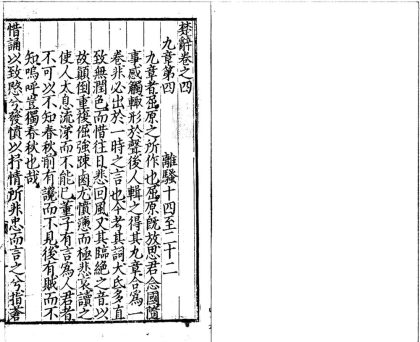 楚辭卷之四
九章第四　離騷十四至二十二
九章者屈原之所作也屈原既放思君念國隨
事感觸輒形於聲後人輯之得其九章合爲一
卷非必出於一時之言也今考其詞大氐多直
致無潤色而惜往日悲回風又其臨絕之音以
故顛倒重複倔強疎鹵尤憤懣而極悲哀讀之
使人太息流涕而不能已董子有言爲人君者
不可以不知春秋前有讒而不見後有賊而不
知嗚呼豈獨春秋也哉
惜誦以致愍兮發憤以抒情所非忠而言之兮指蒼